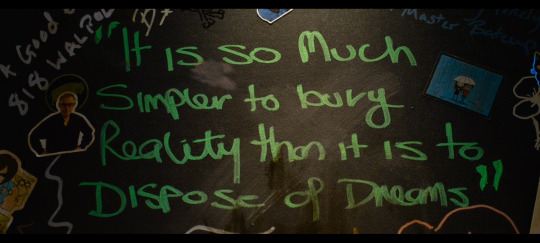 "It is so Much
Simpler to bury
Reality than it is to
Dispose of Dreams"
A Good
818 WALPOL
Master